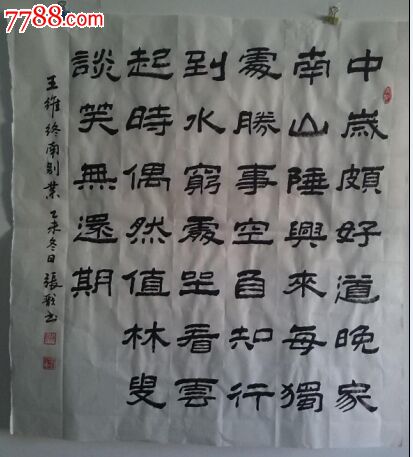 7788.com
中歲頗好道晚家
南山陲興來每獨
處勝事空自知行
到水窮處坐看雲
起時偶然值林叟
談笑無還期
王維終南別業乙未冬日張书